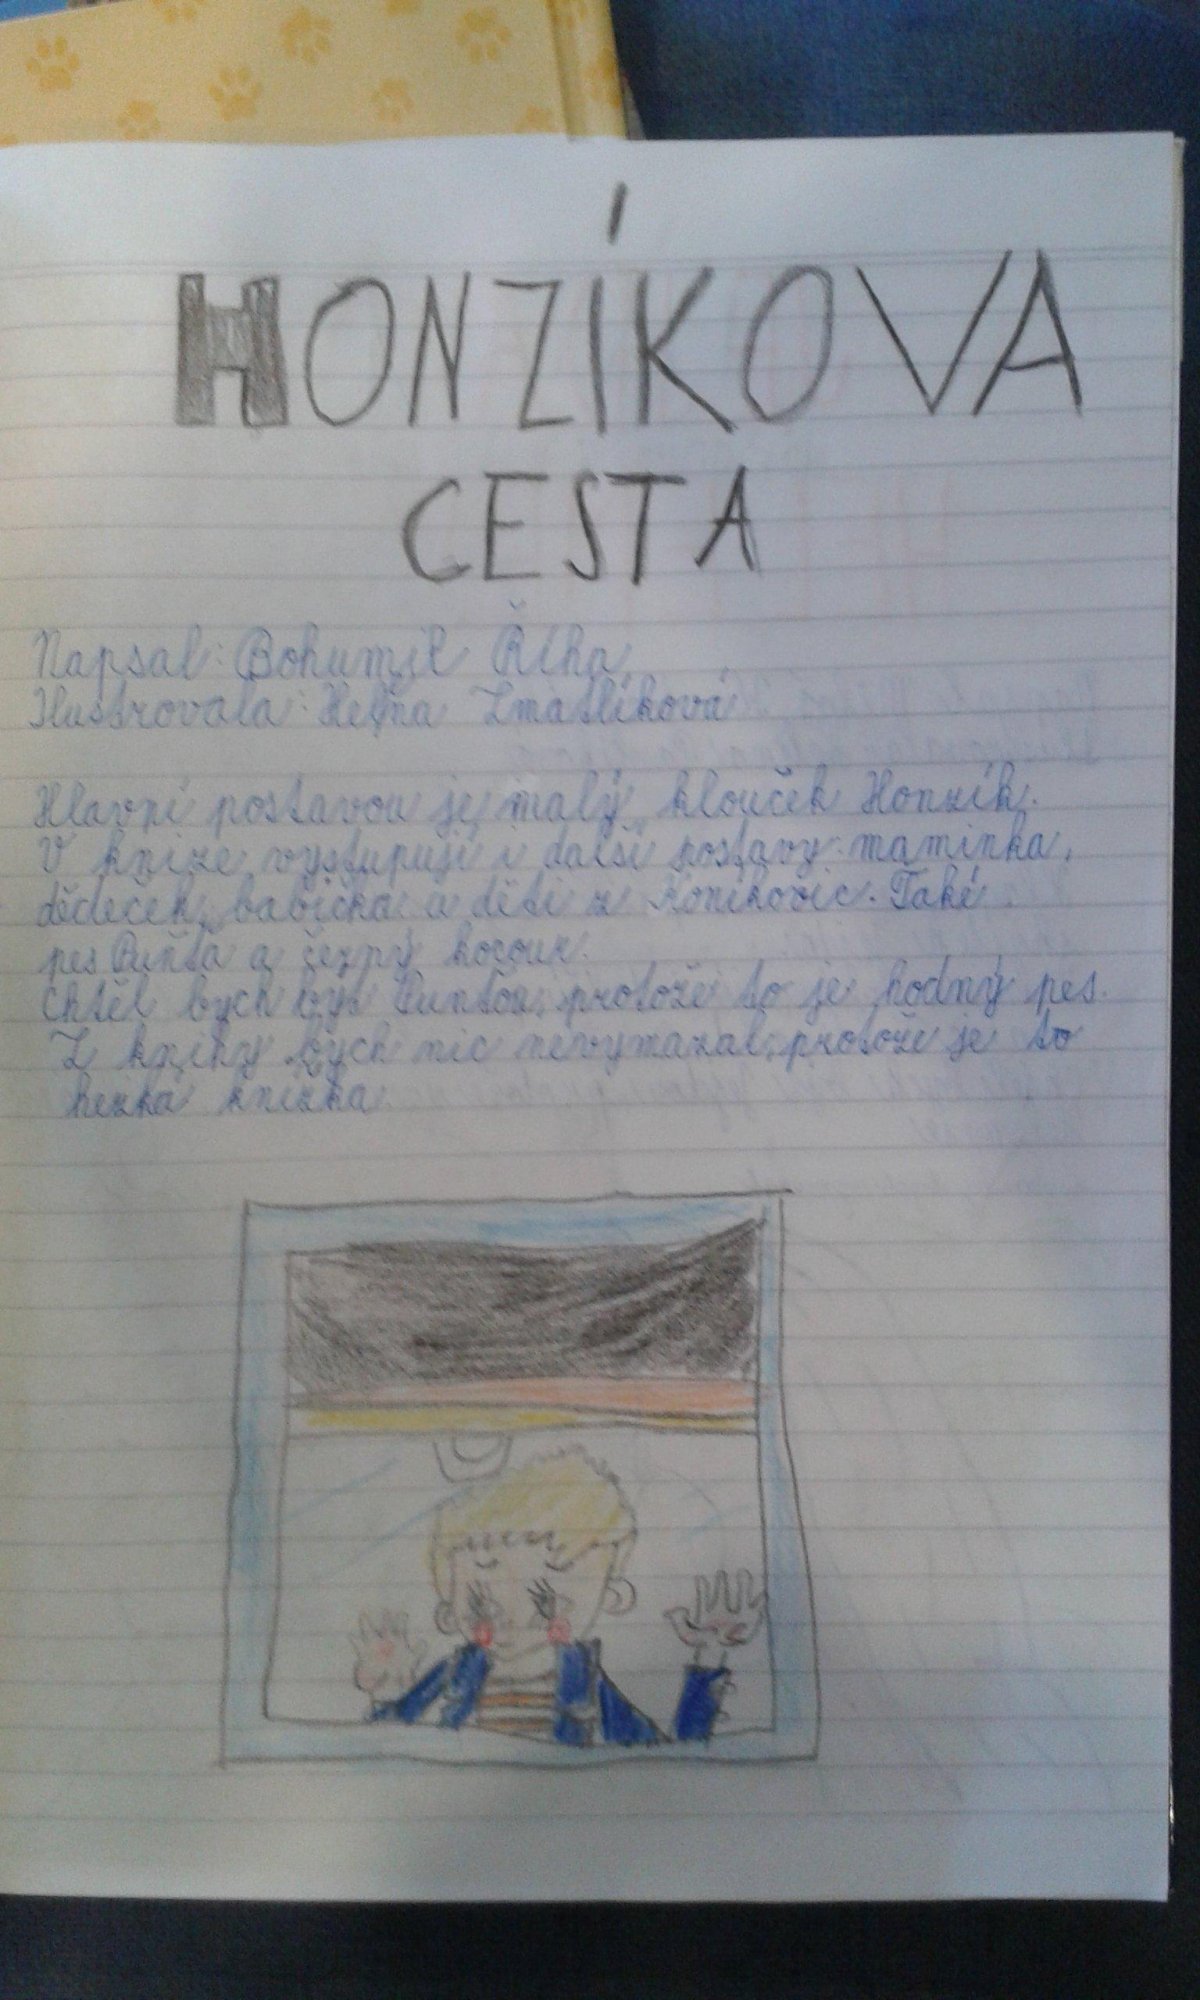 HONZÍKOVA
CESTA
Napsal: Bohumil Říha
Ilustrovala: Helena Zmatlíková
Hlavní postavou je malý klouček Honzík.
V knize vystupují i další postavy: maminka,
dědeček, babička a děti z Koníkovic. Také
pes Punťa a černý kocour.
Chtěl bych být Punťou, protože to je hodný pes.
Z knihy bych nic nevymazal, protože je to
hezká knížka.